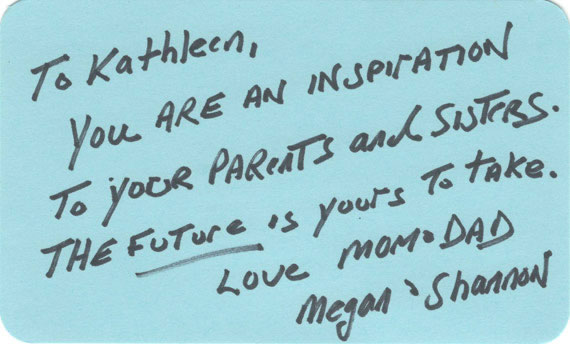 To Kathleen,
You ARE AN INSPIRATION
To your PARENTS and SISTERS.
THE FUTURE is yours To take.
Love MOM & DAD
Megan & Shannon